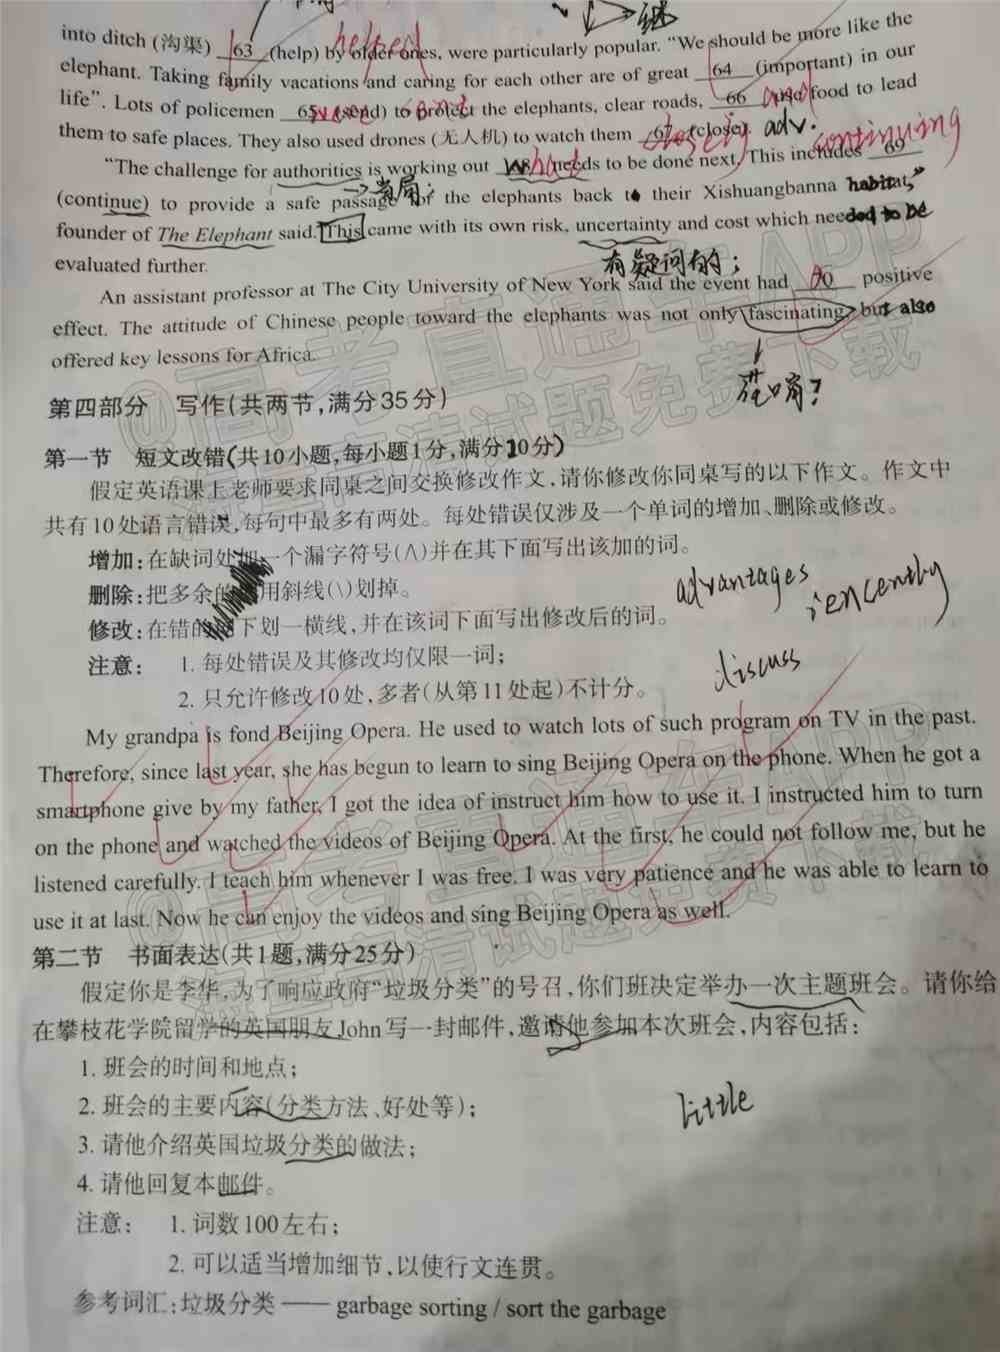 into ditch (沟渠) 63 (help) by older ones, were particularly popular. "We should be more like the
helped
elephant. Taking family vacations and caring for each other are of great 64 (important) in our
life". Lots of policemen 65 (send) to protect the elephants, clear roads, 66 use food to lead
were send and
them to safe places. They also used drones (无人机) to watch them 67 (close).
closely adv. continuing
"The challenge for authorities is working out 68 needs to be done next. This includes 69
what
(continue) to provide a safe passage for the elephants back to their Xishuangbanna habitat,"
→当局;
founder of The Elephant said. This came with its own risk, uncertainty and cost which needed to be
evaluated further.
有疑问的;
An assistant professor at The City University of New York said the event had 70 positive
effect. The attitude of Chinese people toward the elephants was not only fascinating, but also
offered key lessons for Africa.
第四部分 写作(共两节,满分35分)
第一节 短文改错(共10小题,每小题1分,满分10分)
假定英语课上老师要求同桌之间交换修改作文,请你修改你同桌写的以下作文。作文中
共有10处语言错误,每句中最多有两处。每处错误仅涉及一个单词的增加、删除或修改。
增加:在缺词处加一个漏字符号(∧)并在其下面写出该加的词。
删除:把多余的用斜线(\)划掉。
advantages
修改:在错的下划一横线,并在该词下面写出修改后的词。
注意: 1. 每处错误及其修改均仅限一词;
discuss
2. 只允许修改10处,多者(从第11处起)不计分。
My grandpa is fond Beijing Opera. He used to watch lots of such program on TV in the past.
Therefore, since last year, she has begun to learn to sing Beijing Opera on the phone. When he got a
smartphone give by my father, I got the idea of instruct him how to use it. I instructed him to turn
on the phone and watched the videos of Beijing Opera. At the first, he could not follow me, but he
listened carefully. I teach him whenever I was free. I was very patience and he was able to learn to
use it at last. Now he can enjoy the videos and sing Beijing Opera as well.
第二节 书面表达(共1题,满分25分)
假定你是李华,为了响应政府“垃圾分类”的号召,你们班决定举办一次主题班会。请你给
在攀枝花学院留学的英国朋友John写一封邮件,邀请他参加本次班会,内容包括:
1. 班会的时间和地点;
2. 班会的主要内容(分类方法、好处等);
little
3. 请他介绍英国垃圾分类的做法;
4. 请他回复本邮件。
注意: 1. 词数100左右;
2. 可以适当增加细节,以使行文连贯。
参考词汇:垃圾分类—— garbage sorting / sort the garbage